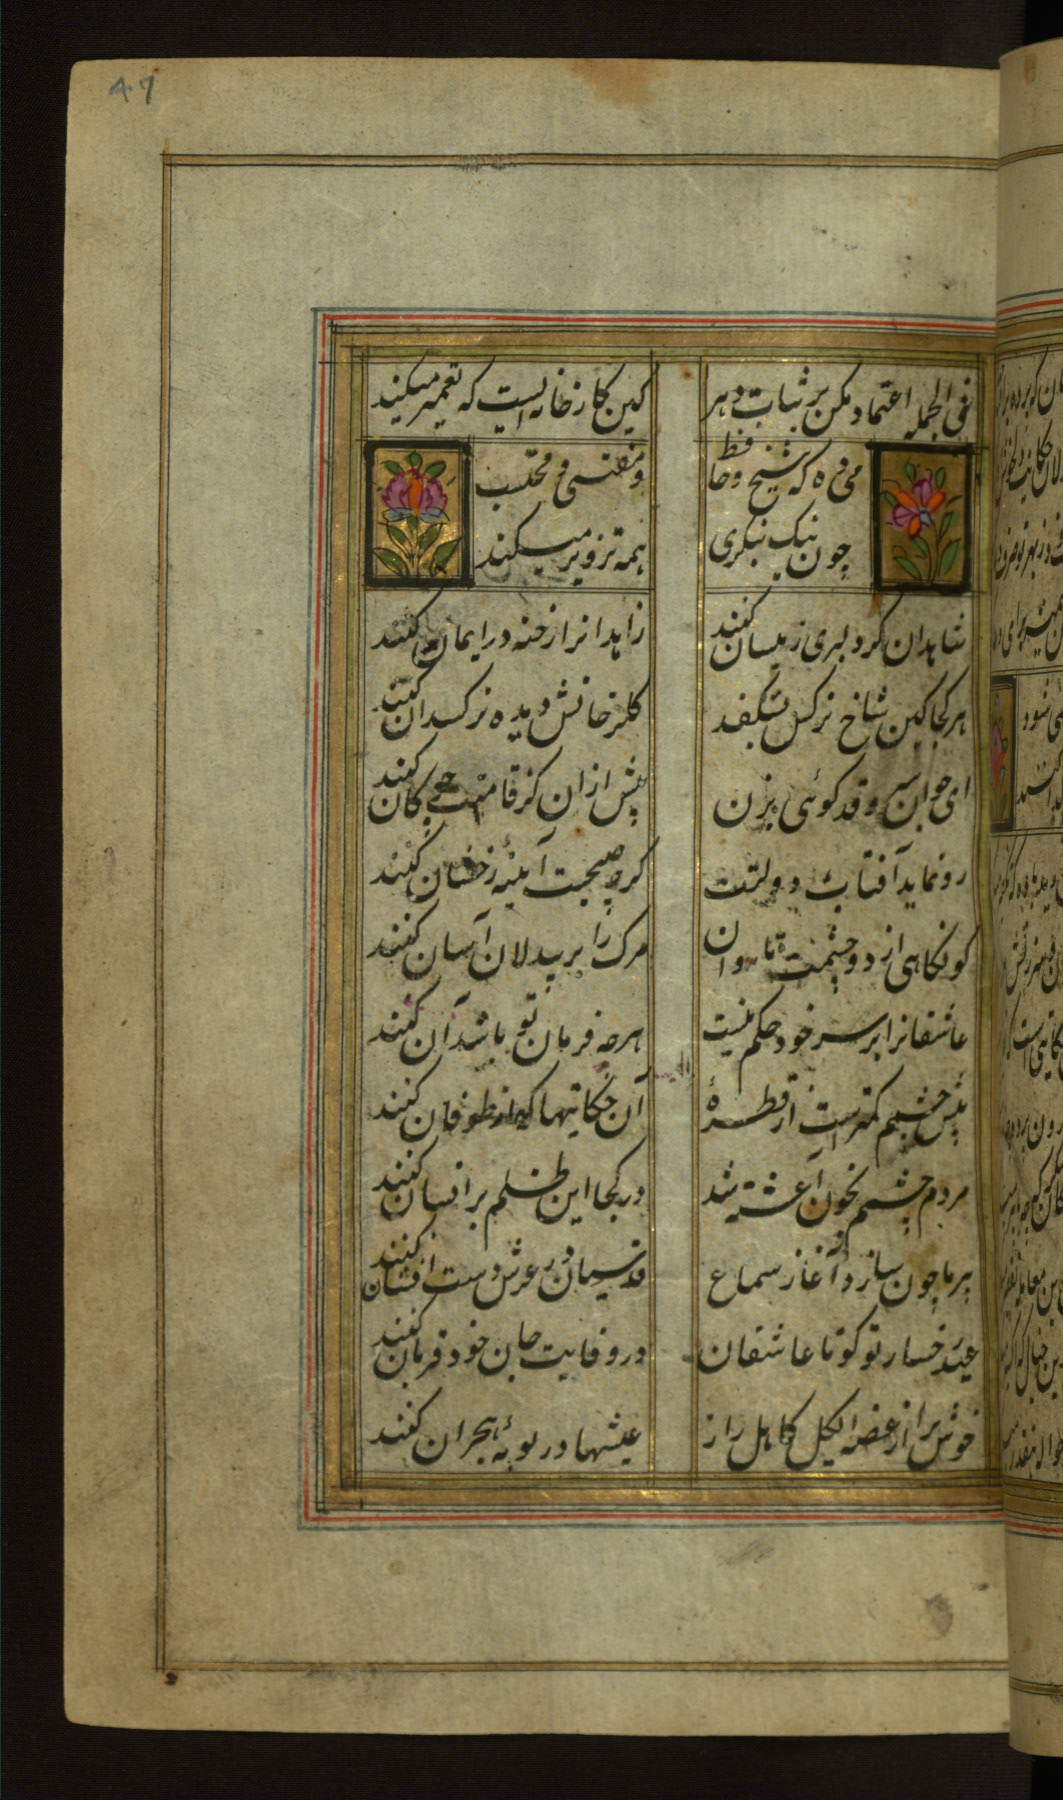 47
فی الجمله اعتماد مکن بر ثبات دهر
کین کارخانه ایست که تغییر میکنند
می ده که شیخ و حافظ
و مفتی و محتسب
چون نیک بنکری
همه تزویر میکنند
شاهدان کر دلبری زینسان کنند
زاهدانرا رخنه در ایمان کنند
هر کجا کین شاخ نرکس بشکفد
کلرخانش دیده نرکسدان کنند
ای جوان سرو قد کوئی بزن
پیش از آن کز قامتت چوکان کنند
رو نماید آفتاب دولتت
کر چو صبحت آینه رخشان کنند
کو نکاهی از دو چشمت تا روان
مرک را بر بیدلان آسان کنند
عاشقانرا بر سر خود حکم نیست
هر چه فرمان تو باشد آن کنند
پیش چشمم کمترست از قطرهٔ
آن حکایتها که از طوفان کنند
مردم چشمم بخون آغشته شد
در کجا این ظلم بر انسان کنند
پیر ما چون سازد آغاز سماع
قدسیان در عرش دست افشان کنند
عید رخسار تو کو تا عاشقان
در وفایت جان خود قربان کنند
خوش برا از غصه ای کاهل راز
عیشها در بوتهٔ هجران کنند